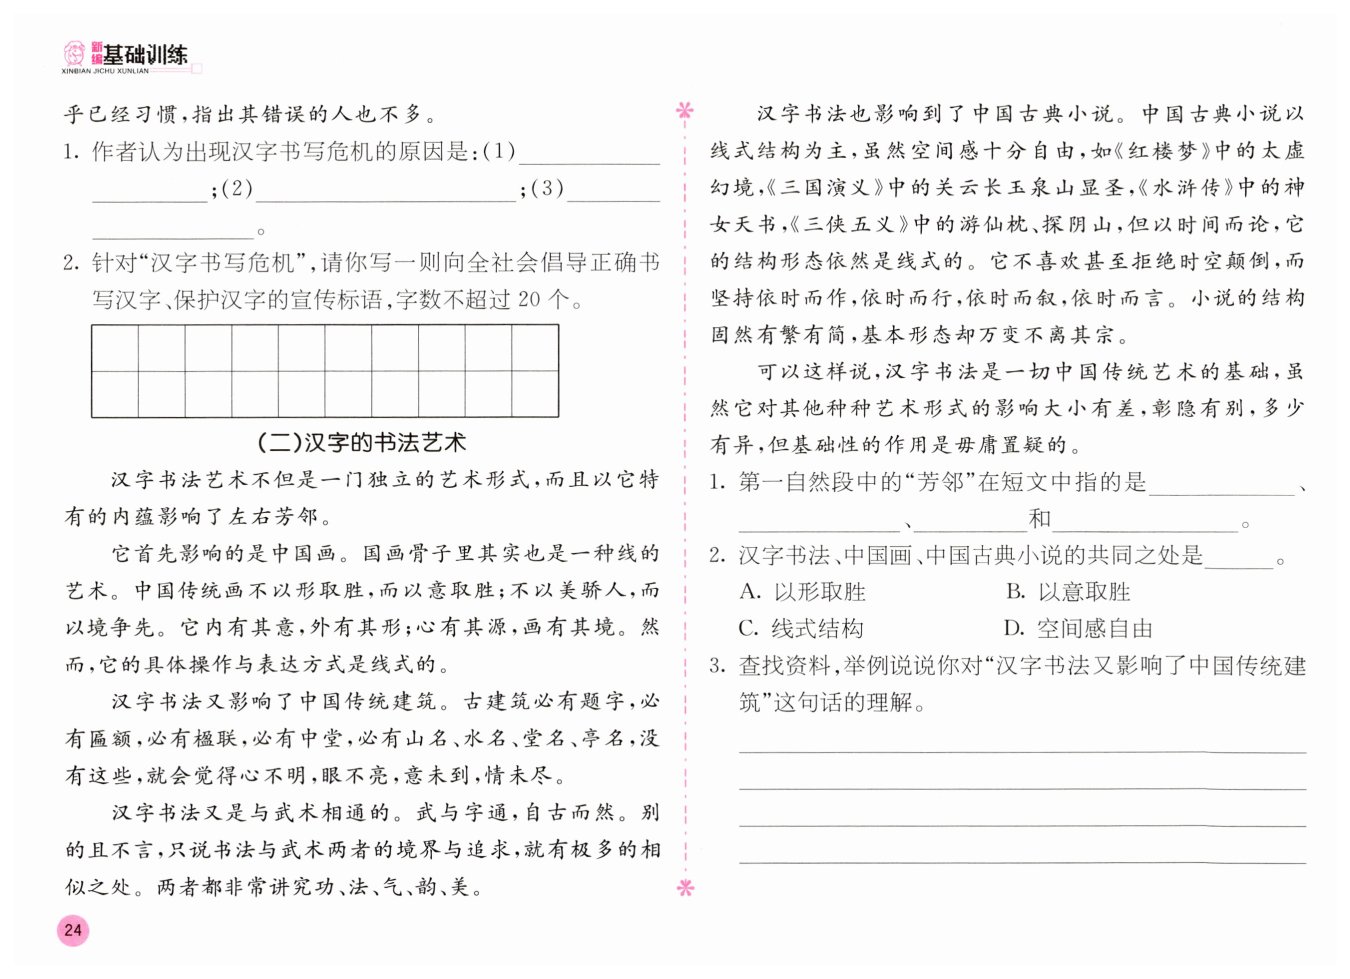 新编基础训练
XINBIAN JICHU XUNLIAN
乎已经习惯,指出其错误的人也不多。
1. 作者认为出现汉字书写危机的原因是:(1)____________
__________;(2)______________________;(3)________
______________。
2. 针对“汉字书写危机”,请你写一则向全社会倡导正确书
写汉字、保护汉字的宣传标语,字数不超过 20 个。
(二)汉字的书法艺术
汉字书法艺术不但是一门独立的艺术形式,而且以它特
有的内蕴影响了左右芳邻。
它首先影响的是中国画。国画骨子里其实也是一种线的
艺术。中国传统画不以形取胜,而以意取胜;不以美骄人,而
以境争先。它内有其意,外有其形;心有其源,画有其境。然
而,它的具体操作与表达方式是线式的。
汉字书法又影响了中国传统建筑。古建筑必有题字,必
有匾额,必有楹联,必有中堂,必有山名、水名、堂名、亭名,没
有这些,就会觉得心不明,眼不亮,意未到,情未尽。
汉字书法又是与武术相通的。武与字通,自古而然。别
的且不言,只说书法与武术两者的境界与追求,就有极多的相
似之处。两者都非常讲究功、法、气、韵、美。
24
汉字书法也影响到了中国古典小说。中国古典小说以
线式结构为主,虽然空间感十分自由,如《红楼梦》中的太虚
幻境,《三国演义》中的关云长玉泉山显圣,《水浒传》中的神
女天书,《三侠五义》中的游仙枕、探阴山,但以时间而论,它
的结构形态依然是线式的。它不喜欢甚至拒绝时空颠倒,而
坚持依时而作,依时而行,依时而叙,依时而言。小说的结构
固然有繁有简,基本形态却万变不离其宗。
可以这样说,汉字书法是一切中国传统艺术的基础,虽
然它对其他种种艺术形式的影响大小有差,彰隐有别,多少
有异,但基础性的作用是毋庸置疑的。
1. 第一自然段中的“芳邻”在短文中指的是____________、
______________、__________和________________。
2. 汉字书法、中国画、中国古典小说的共同之处是______。
A. 以形取胜 B. 以意取胜
C. 线式结构 D. 空间感自由
3. 查找资料,举例说说你对“汉字书法又影响了中国传统建
筑”这句话的理解。